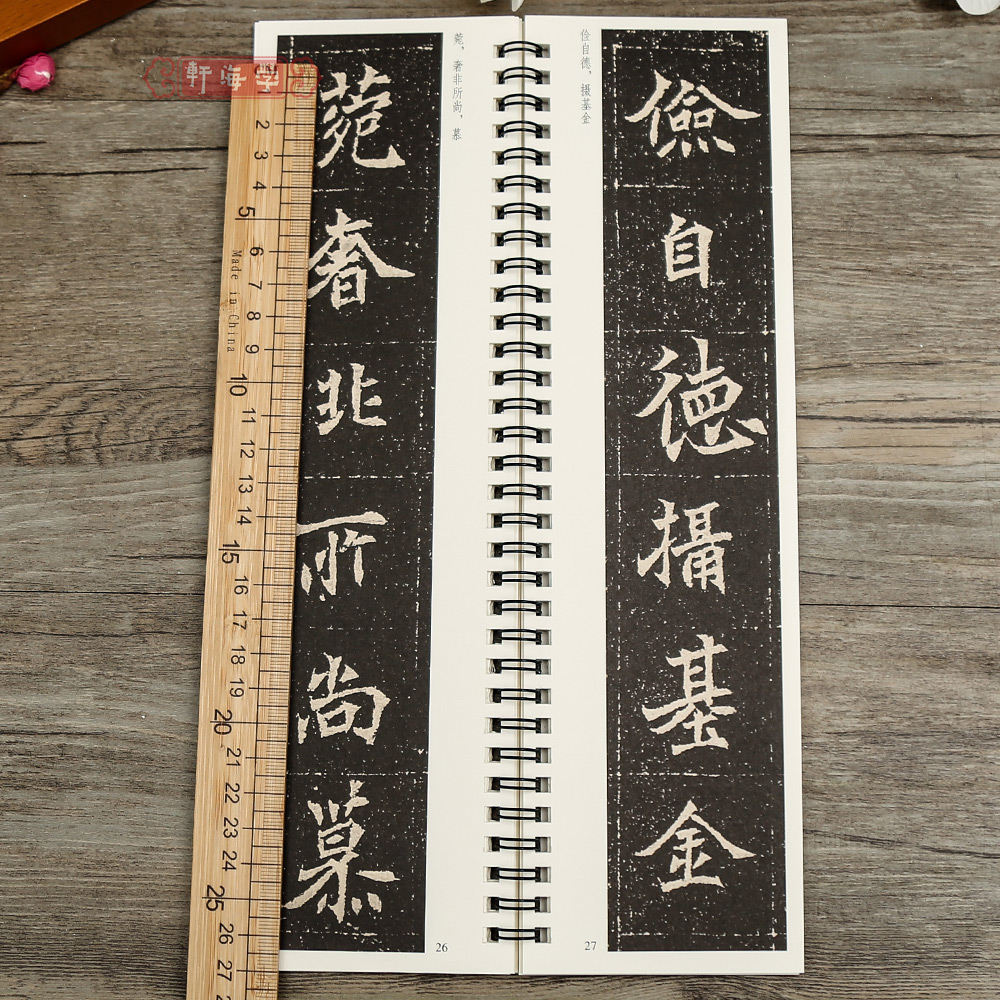 軒海学习
菀奢非所尚慕
菀，奢非所尚，慕
26
俭自德，摄基金
儉自德攝基金
27
Made in China
2 3 4 5 6 7 8 9 10 11 12 13 14 15 16 17 18 19 20 21 22 23 24 25 26 27